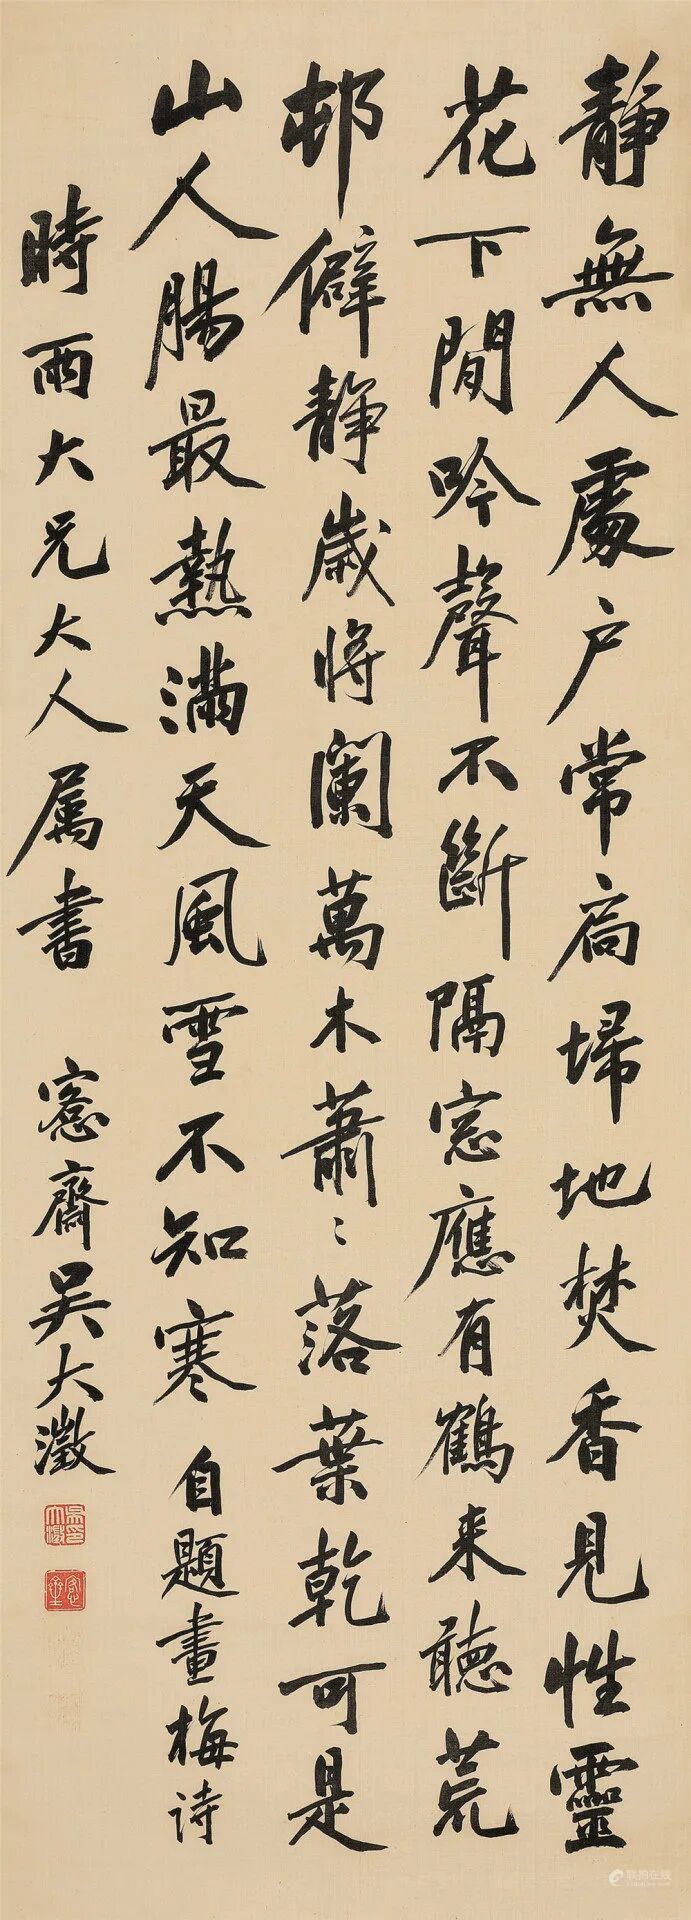 静無人處户常扃埽地焚香見性靈
花下閒吟聲不斷隔窓應有鶴来聽荒
邨僻静歲将闌萬木蕭〻落葉乾可是
山人腸最熱滿天風雪不知寒 自題畫梅诗
時雨大兄大人属書 愙齋吴大澂